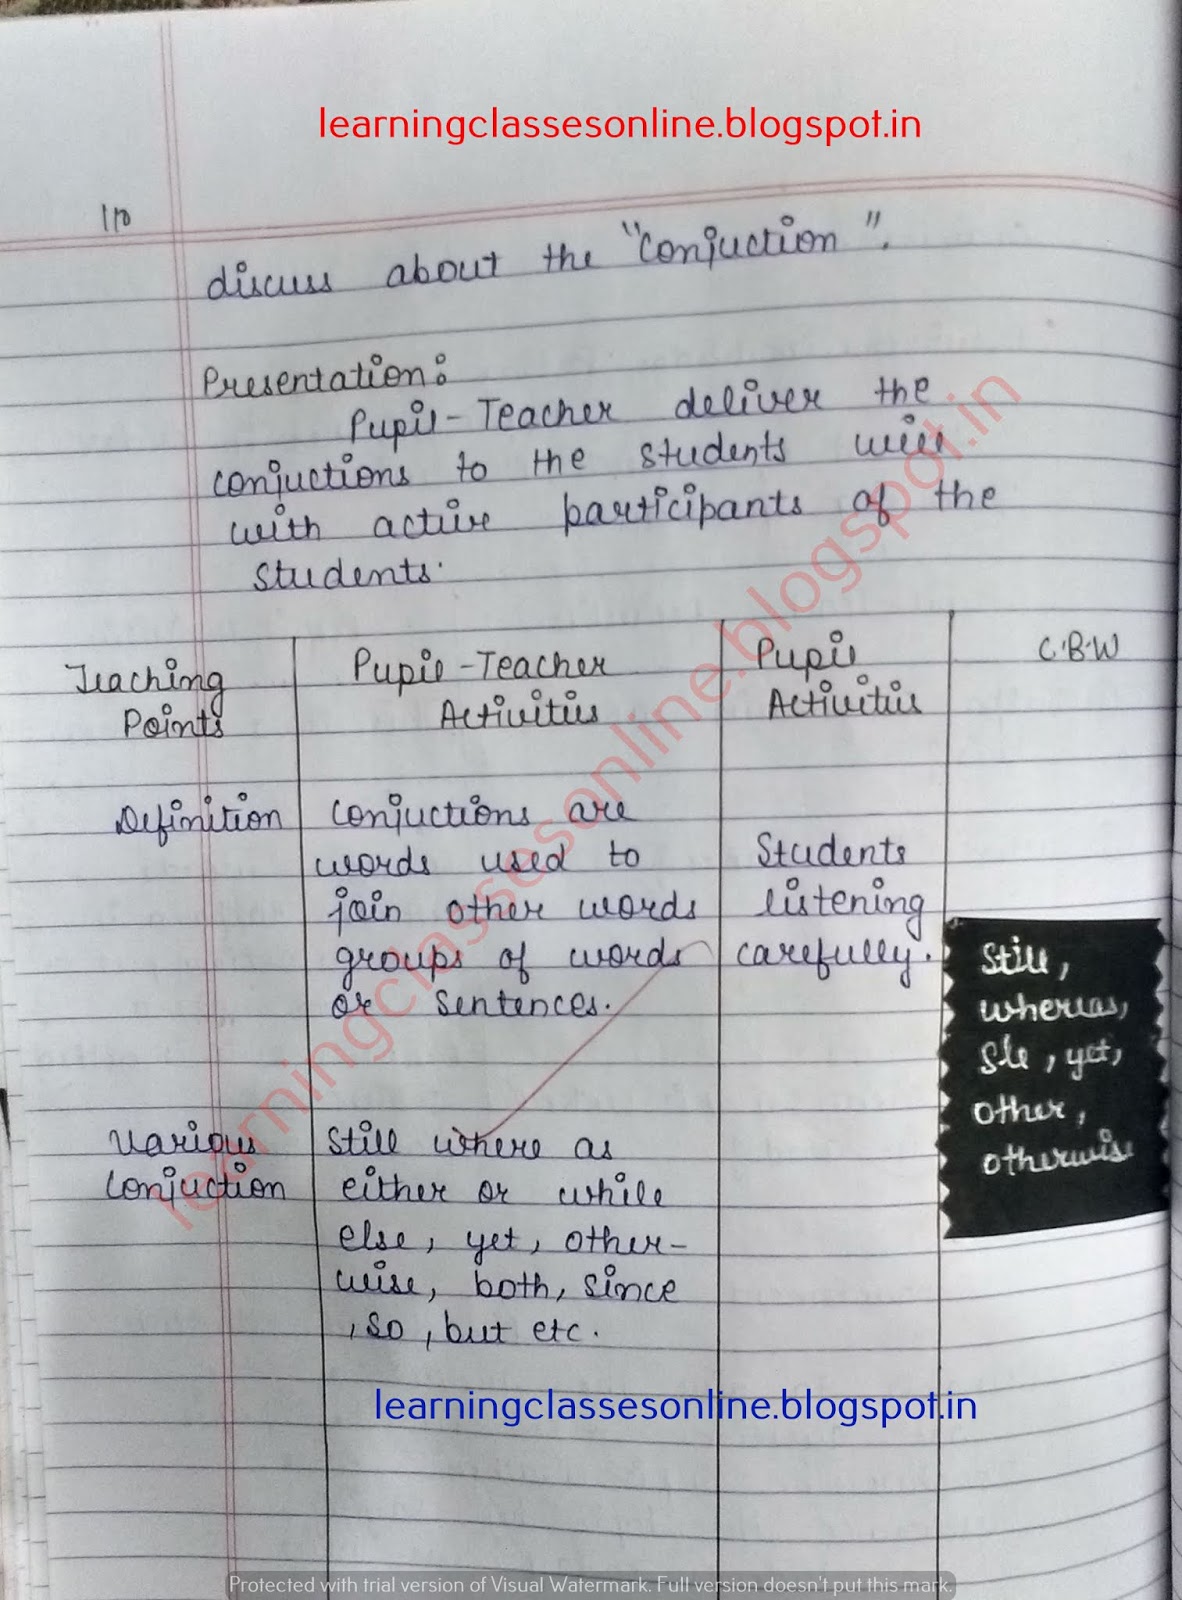 learningclassesonline.blogspot.in
110
discuss about the "Conjuction".
Presentation:
Pupil-Teacher deliver the
conjuctions to the students will
with active participants of the
students.
Teaching
Points
Pupil-Teacher
Activities
Pupil
Activities
C.B.W
Definition
Conjuctions are
words used to
join other words
groups of words
or sentences.
Students
listening
carefully.
Still,
whereas,
sle, yet,
other,
otherwise
Various
Conjuction
Still where as
either or while
else, yet, other-
wise, both, since
, so, but etc.
learningclassesonline.blogspot.in
learningclassesonline.blogspot.in
Protected with trial version of Visual Watermark. Full version doesn't put this mark.